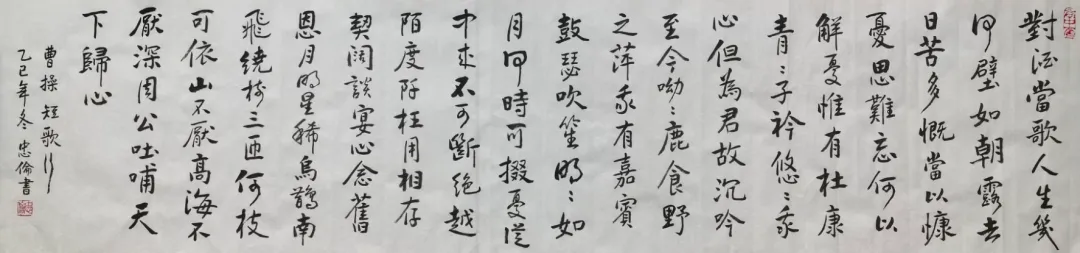 對酒當歌人生幾
何壁如朝露去
日苦多慨當以慷
憂思難忘何以
解憂惟有杜康
青〻子衿悠〻我
心但為君故沉吟
至今呦〻鹿食野
之萍我有嘉賓
鼓瑟吹笙明〻如
月何時可掇憂從
中来不可斷絕越
陌度阡枉用相存
契闊談宴心念舊
恩月明星稀烏鵲南
飛繞樹三匝何枝
可依山不厭高海不
厭深周公吐哺天
下歸心
曹操短歌行
乙巳年冬忠倫書